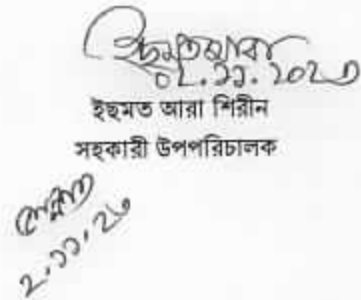 ইছমত আরা
০২.১১.২০২৩
ইছমত আরা শিরীন
সহকারী উপপরিচালক
২.১১.২৩